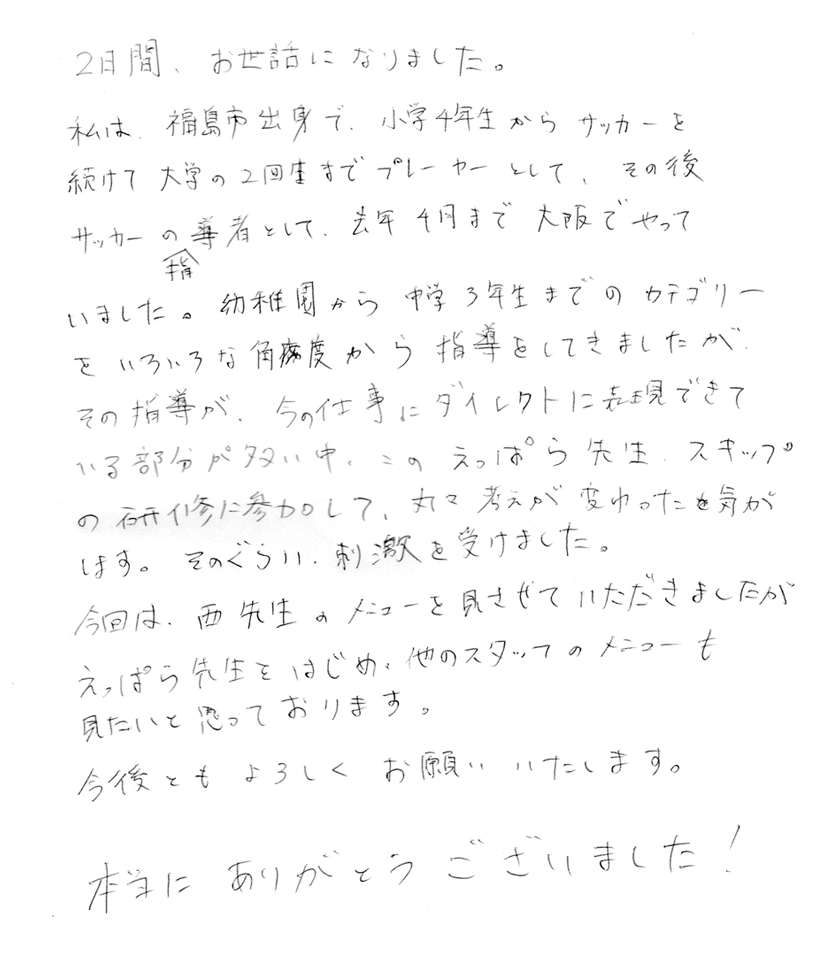 2日間、お世話になりました。
私は、福島市出身で、小学4年生からサッカーを
続けて大学の2回生までプレーヤーとして、その後
サッカーの指導者として、去年4月まで大阪でやって
いました。幼稚園から中学3年生までのカテゴリー
をいろいろな角度から指導をしてきましたが、
その指導が、今の仕事にダイレクトに表現できて
いる部分が多い中、このえっぱら先生、スキップ
の研修に参加して、丸々考えが変わった気が
します。そのぐらい、刺激を受けました。
今回は、西先生のメニューを見させていただきましたが
えっぱら先生をはじめ、他のスタッフのメニューも
見たいと思っております。
今後ともよろしくお願いいたします。
本当にありがとうございました!